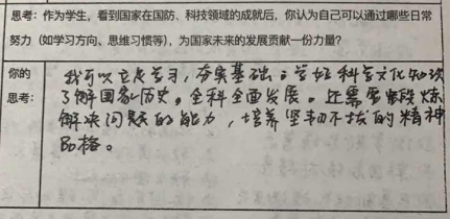 思考：作为学生，看到国家在国防、科技领域的成就后，你认为自己可以通过哪些日常
努力（如学习方向、思维习惯等），为国家未来的发展贡献一份力量？
你的
思考：
我可以立足学习，夯实基础：学好科学文化知识
了解国家历史。全科全面发展。还需要锻炼
解决问题的能力，培养坚韧不拔的精神
品格。